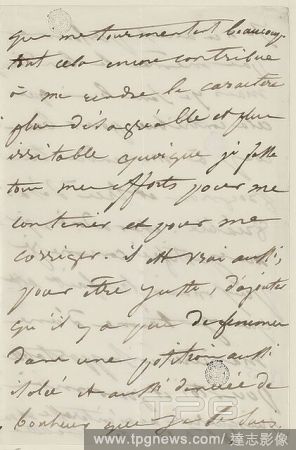 qui me tourmentent beaucoup
tout cela encore contribue
à me rendre le caractère
plus désagréable et plus
irritable quoique je fasse
tous mes efforts pour me
contenir et pour me
corriger. il est vrai aussi,
pour être juste, d'ajouter
qu'il y a peu de femmes
dans une position aussi
isolée et aussi dénuée de
bonheur que je le suis
TPG
www.tpgnews.com / 達志影像